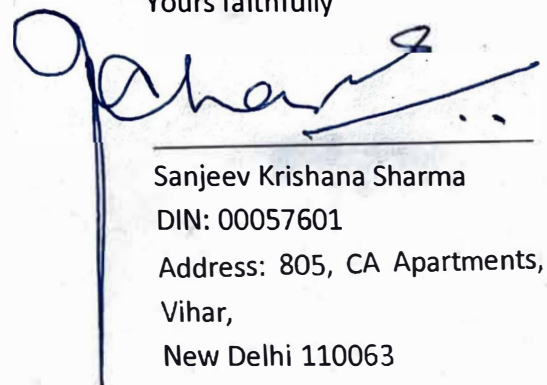 Yours faithfully
Sanjeev Krishana Sharma
DIN: 00057601
Address: 805, CA Apartments,
Vihar,
New Delhi 110063